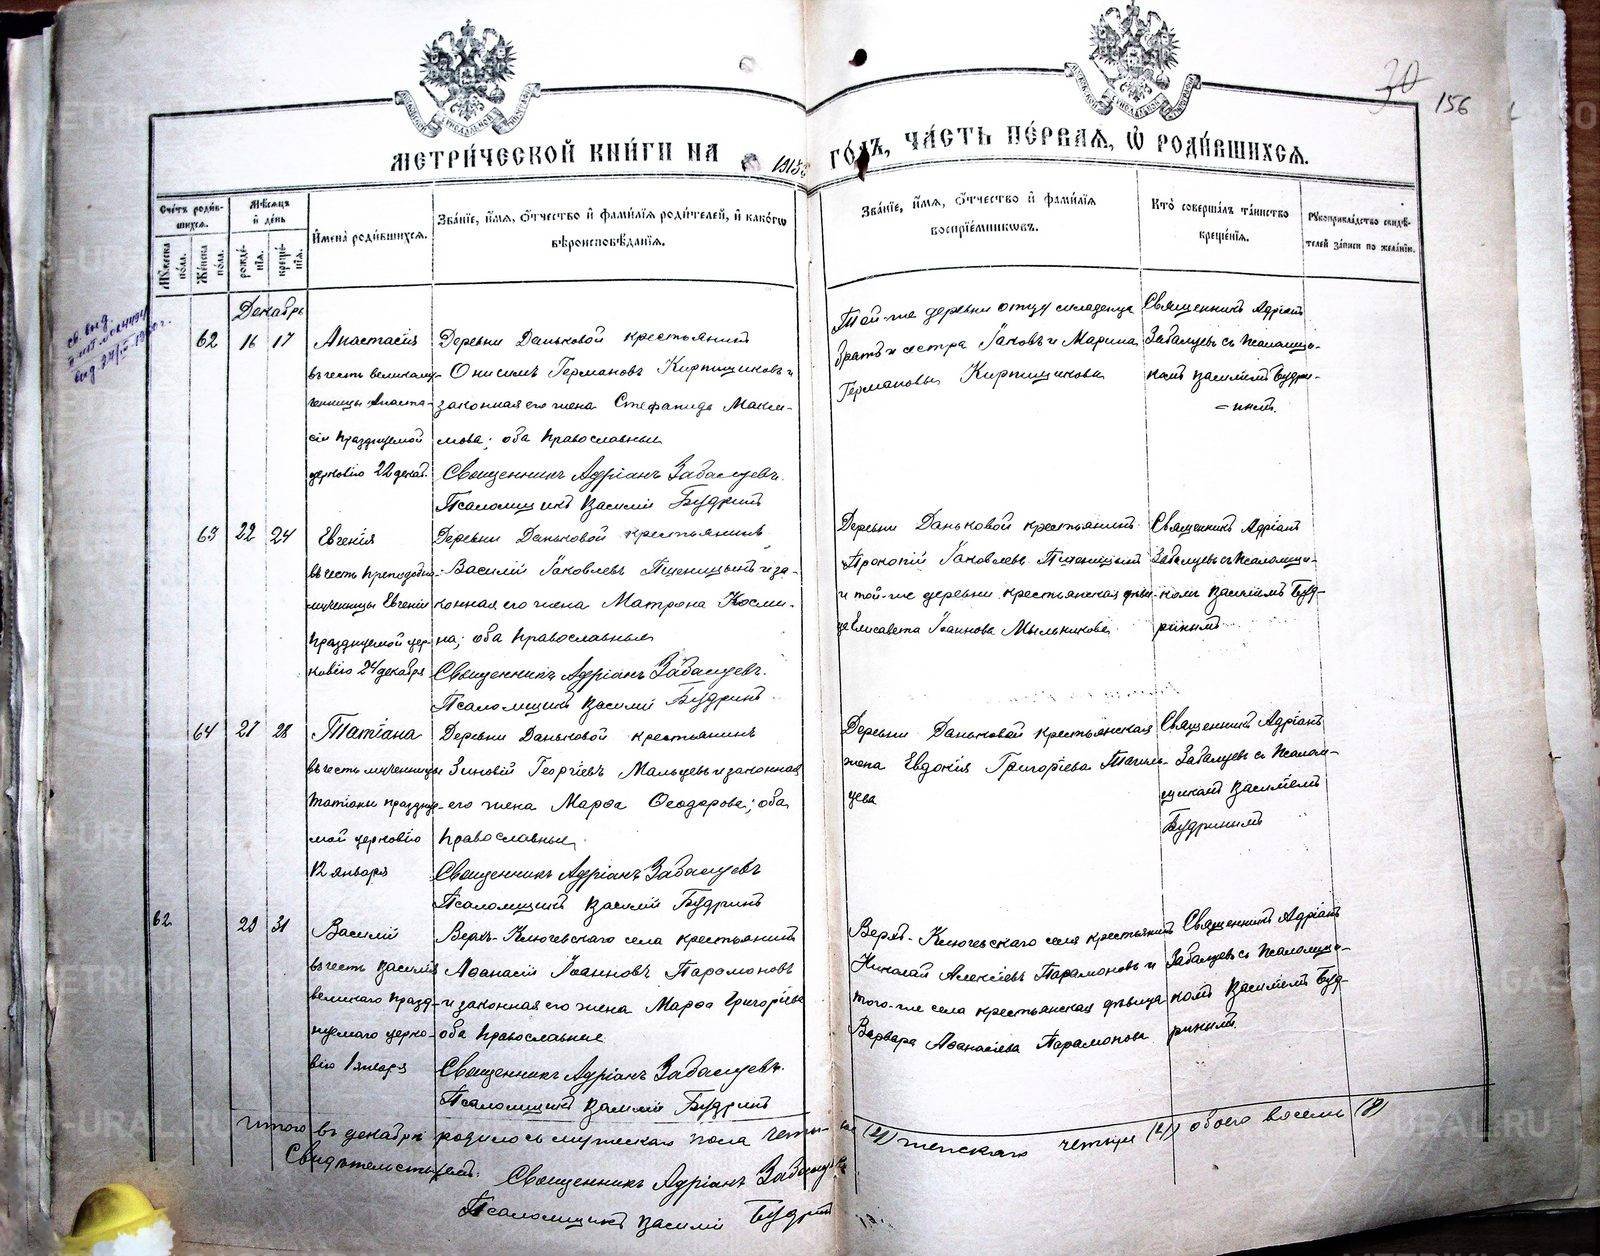 МЕТРИ́ЧЕСКОЙ КНИ́ГИ НА 1915
ГО́ДЪ, ЧА́СТЬ ПЕ́РВАЯ, Ѡ РОДИ́ВШИХСЯ.
30
156
Сче́тъ роди́в-
шихся.
Му́жеска
по́ла.
Же́нска
по́ла.
Мѣ́сяцъ
и де́нь
рожде́-
нїя.
креще́-
нїя.
И҆мена̀ роди́вшихся.
Зва́нїе, и҆́мя, ѻ҆́тчество и҆ фами́лїя роди́телей, и҆ како́гѡ
вѣроисповѣ́данїя.
Зва́нїе, и҆́мя, ѻ҆́тчество и҆ фами́лїя
воспрїе́мникѡвъ.
Кто̀ соверша́лъ та́инство
креще́нїя.
Рꙋкоприкла́дство свидѣ́-
телей за́писи по жела́нїю.
Декабрь
62 16 17
Анастасія
въ честь великому-
ченицы Анаста-
сіи празднуемой
церковію 22 декаб.
Деревни Даньковой крестьянинъ
Онисимъ Германовъ Кирпищиковъ и
законная его жена Стефанида Макси-
мова; оба православные
Священникъ Адріанъ Забалуевъ.
Псаломщикъ Василій Будринъ
Той-же деревни отцу младенца
братъ и сестра Іаковъ и Марина
Германовы Кирпищиковы
Священникъ Адріанъ
Забалуевъ съ псаломщи-
комъ Василіемъ Будри-
нымъ.
63 22 24
Евгенія
въ честь преподобно-
мученицы Евгеніи
празднуемой цер-
ковію 24 декабря
Деревни Даньковой крестьянинъ
Василій Іаковлевъ Пшеницынъ и за-
конная его жена Матрона Косми-
на; оба православные
Священникъ Адріанъ Забалуевъ.
Псаломщикъ Василій Будринъ
Деревни Даньковой крестьянинъ
Прокопій Іаковлевъ Пшеницынъ
и той-же деревни крестьянская дѣви-
ца Елисавета Іоаннова Мыльникова
Священникъ Адріанъ
Забалуевъ съ псаломщи-
комъ Василіемъ Буд-
ринымъ
64 27 28
Татіана
въ честь мученицы
Татіаны празднуе-
мой церковію
12 января
Деревни Даньковой крестьянинъ
Зиновій Георгіевъ Мальцевъ и законная
его жена Марѳа Ѳеодорова; оба
православные
Священникъ Адріанъ Забалуевъ
Псаломщикъ Василій Будринъ
Деревни Даньковой крестьянская
жена Евдокія Григоріева
цева
Священникъ Адріанъ
Забалуевъ съ псалом-
щикомъ Василіемъ
Будринымъ
62 29 31
Василій
въ честь Василія
великаго празд-
нуемаго церко-
вію 1 января
Верхъ-Ключевскаго села крестьянинъ
Аѳанасій Іоанновъ Парамоновъ
и законная его жена Марѳа Григоріева
оба православные
Священникъ Адріанъ Забалуевъ.
Псаломщикъ Василій Будринъ
Верхъ-Ключевскаго села крестьянинъ
Николай Алексіевъ Парамоновъ и
того-же села крестьянская дѣвица
Варвара Аѳанасіева Парамонова
Священникъ Адріанъ
Забалуевъ съ псаломщи-
комъ Василіемъ Буд-
ринымъ
Итого въ декабрѣ родилось мужескаго пола четы-
ре (4) женскаго четыре (4) обоего восемь (8)
Свидѣтельствуемъ:
Священникъ Адріанъ Забалуевъ
Псаломщикъ Василій Будринъ